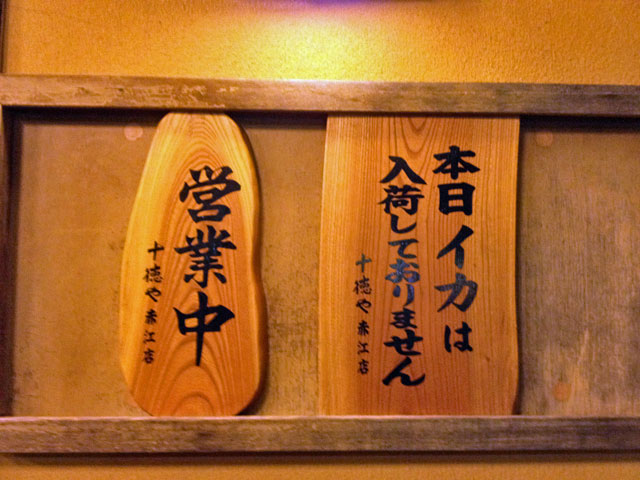 営業中
十徳や赤江店
本日イカは
入荷しておりません
十徳や赤江店